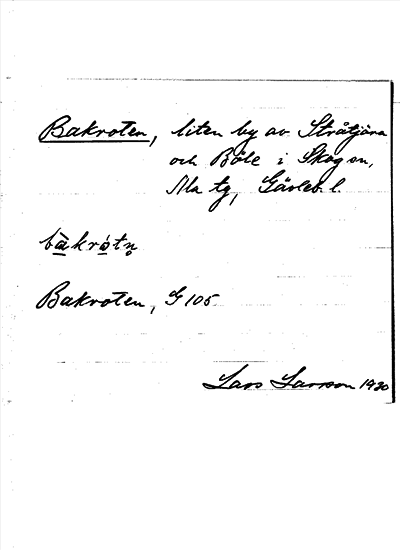 Bakroten, liten by av Stråtjära
och Böle i Skog sn,
Ala tg, Gävleb. l.
bàkrótn̥
Bakroten, G 105
Lars Larsson 1930